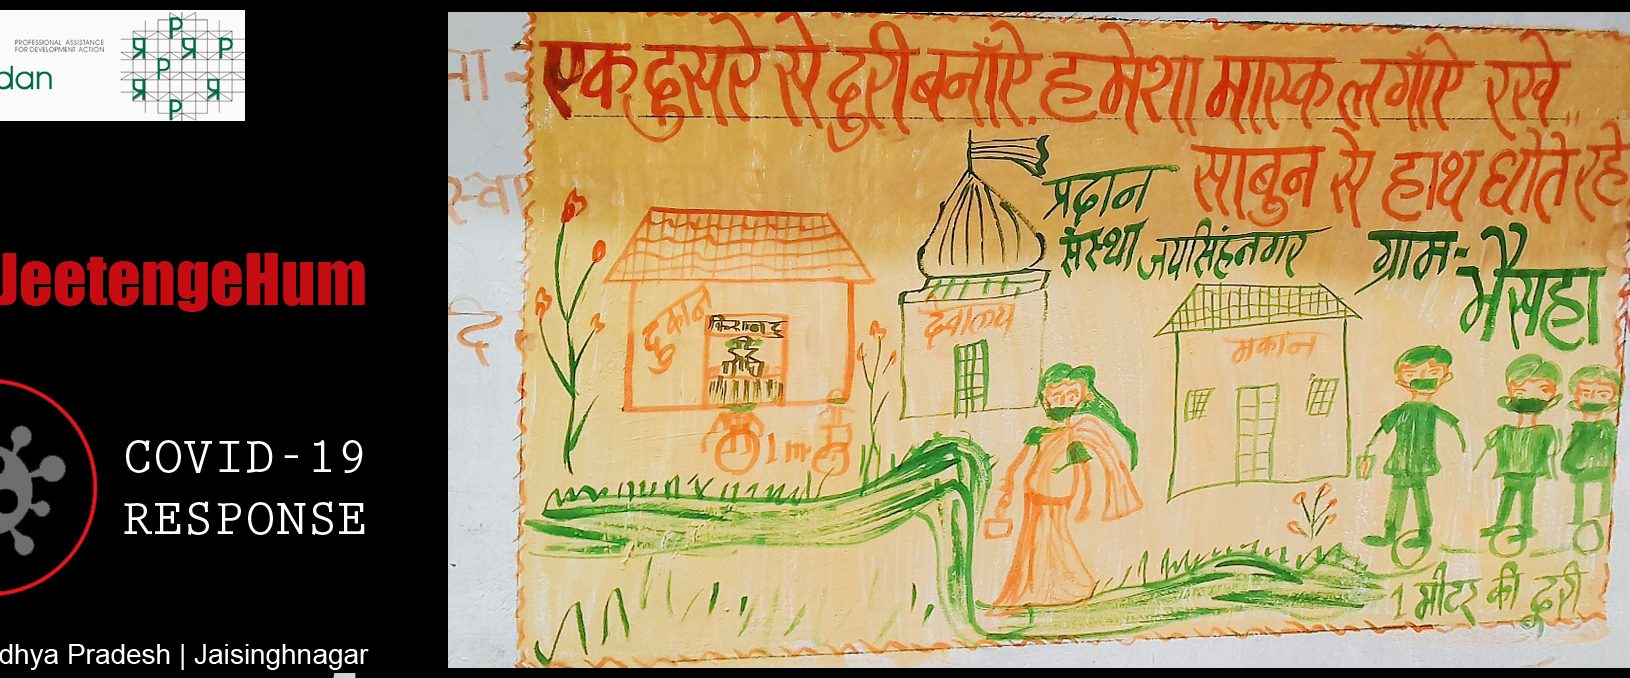 PROFESSIONAL ASSISTANCE
FOR DEVELOPMENT ACTION
dan
JeetengeHum
COVID-19
RESPONSE
dhya Pradesh | Jaisinghnagar
एक दुसरे से दुरी बनाँऐ. हमेशा मास्क लगाँऐ रखे..
साबुन से हाथ धोते रहे
प्रदान
संस्था जयसिंहनगर
ग्राम-
भैसहा
दुकान
देवालय
मकान
1 m
1 मीटर की दुरी